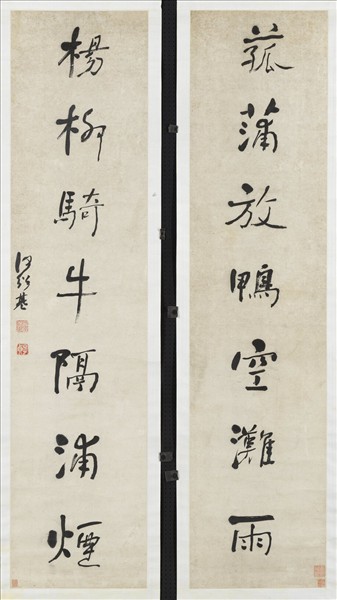 菰蒲放鴨空灘雨
楊柳騎牛隔浦煙
何紹基